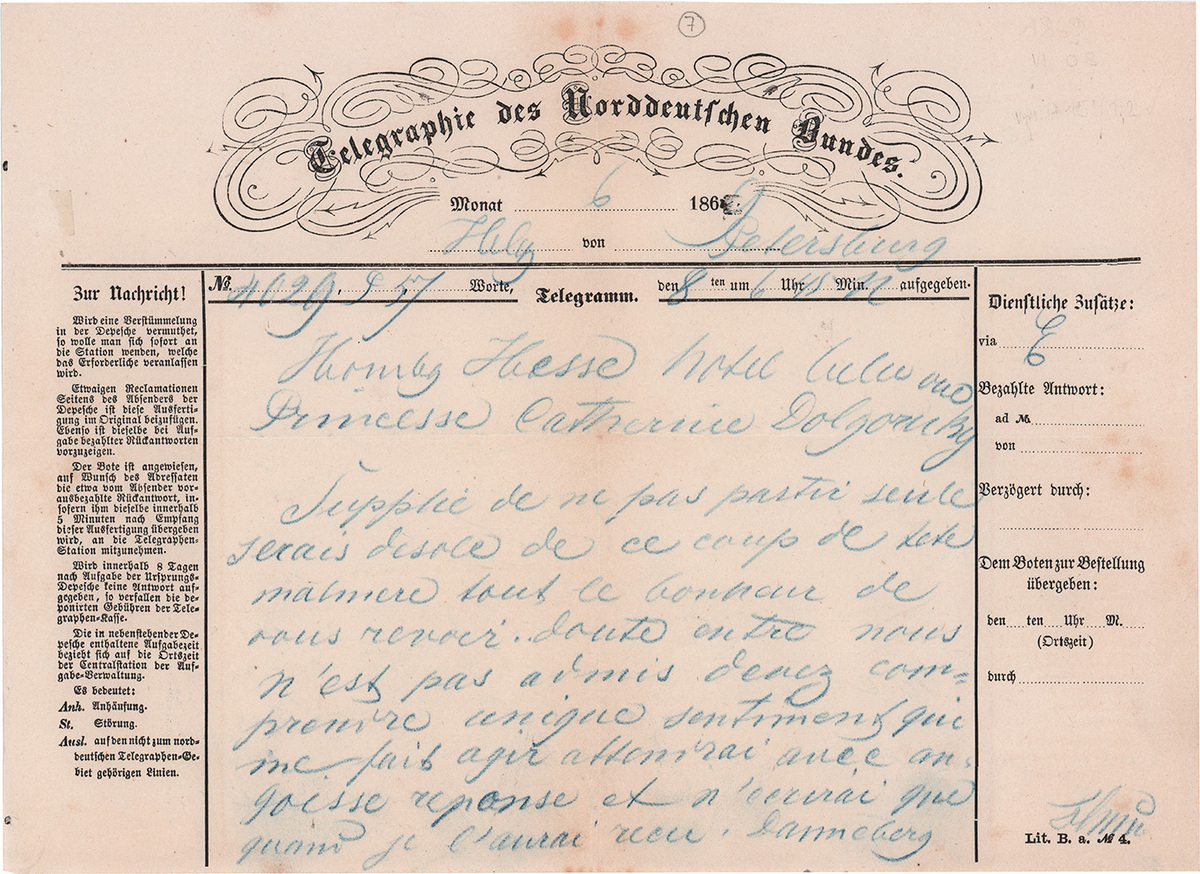 7
Telegraphie des Norddeutschen Bundes.
Monat 6 186
Hbg von Petersburg
Zur Nachricht!
Wird eine Verstümmelung
in der Depesche vermuthet,
so wolle man sich sofort an
die Station wenden, welche
das Erforderliche veranlassen
wird.
Etwaigen Reclamationen
Seitens des Absenders der
Depesche ist diese Ausferti-
gung im Original beizufügen.
Ebenso ist dieselbe bei Auf-
gabe bezahlter Rückantworten
vorzuzeigen.
Der Bote ist angewiesen,
auf Wunsch des Adressaten
die etwa vom Absender vor-
ausbezahlte Rückantwort, in-
sofern ihm dieselbe innerhalb
5 Minuten nach Empfang
dieser Ausfertigung übergeben
wird, an die Telegraphen-
Station mitzunehmen.
Wird innerhalb 8 Tagen
nach Aufgabe der Ursprungs-
Depesche keine Antwort auf-
gegeben, so verfallen die de-
ponirten Gebühren der Tele-
graphen-Kasse.
Die in nebenstehender De-
pesche enthaltene Aufgabezeit
bezieht sich auf die Ortszeit
der Centralstation der Auf-
gabe-Verwaltung.
Es bedeutet:
Anh. Anhäufung.
St. Störung.
Ausl. auf den nicht zum nord-
deutschen Telegraphen-Ge-
biet gehörigen Linien.
No. 4029, 57 Worte. Telegramm. den 8 ten um 6 Uhr 45 Min. aufgegeben.
Hombg Hesse hotel
Princesse Catherine Dolgorucky
Supplie de ne pas partir seule
serais desole de ce coup de tete
malmere tout le bonheur de
vous revoir. doute entre nous
n'est pas admis devez com=
prendre unique sentiment qui
me fait agir attendrai avec an=
goisse reponse et n'ecrirai que
quand je l'aurai recu. Danneberg
Dienstliche Zusätze:
via E
Bezahlte Antwort:
ad No.
von
Verzögert durch:
Dem Boten zur Bestellung
übergeben:
den ten Uhr M.
(Ortszeit)
durch
Lit. B. a. No 4.